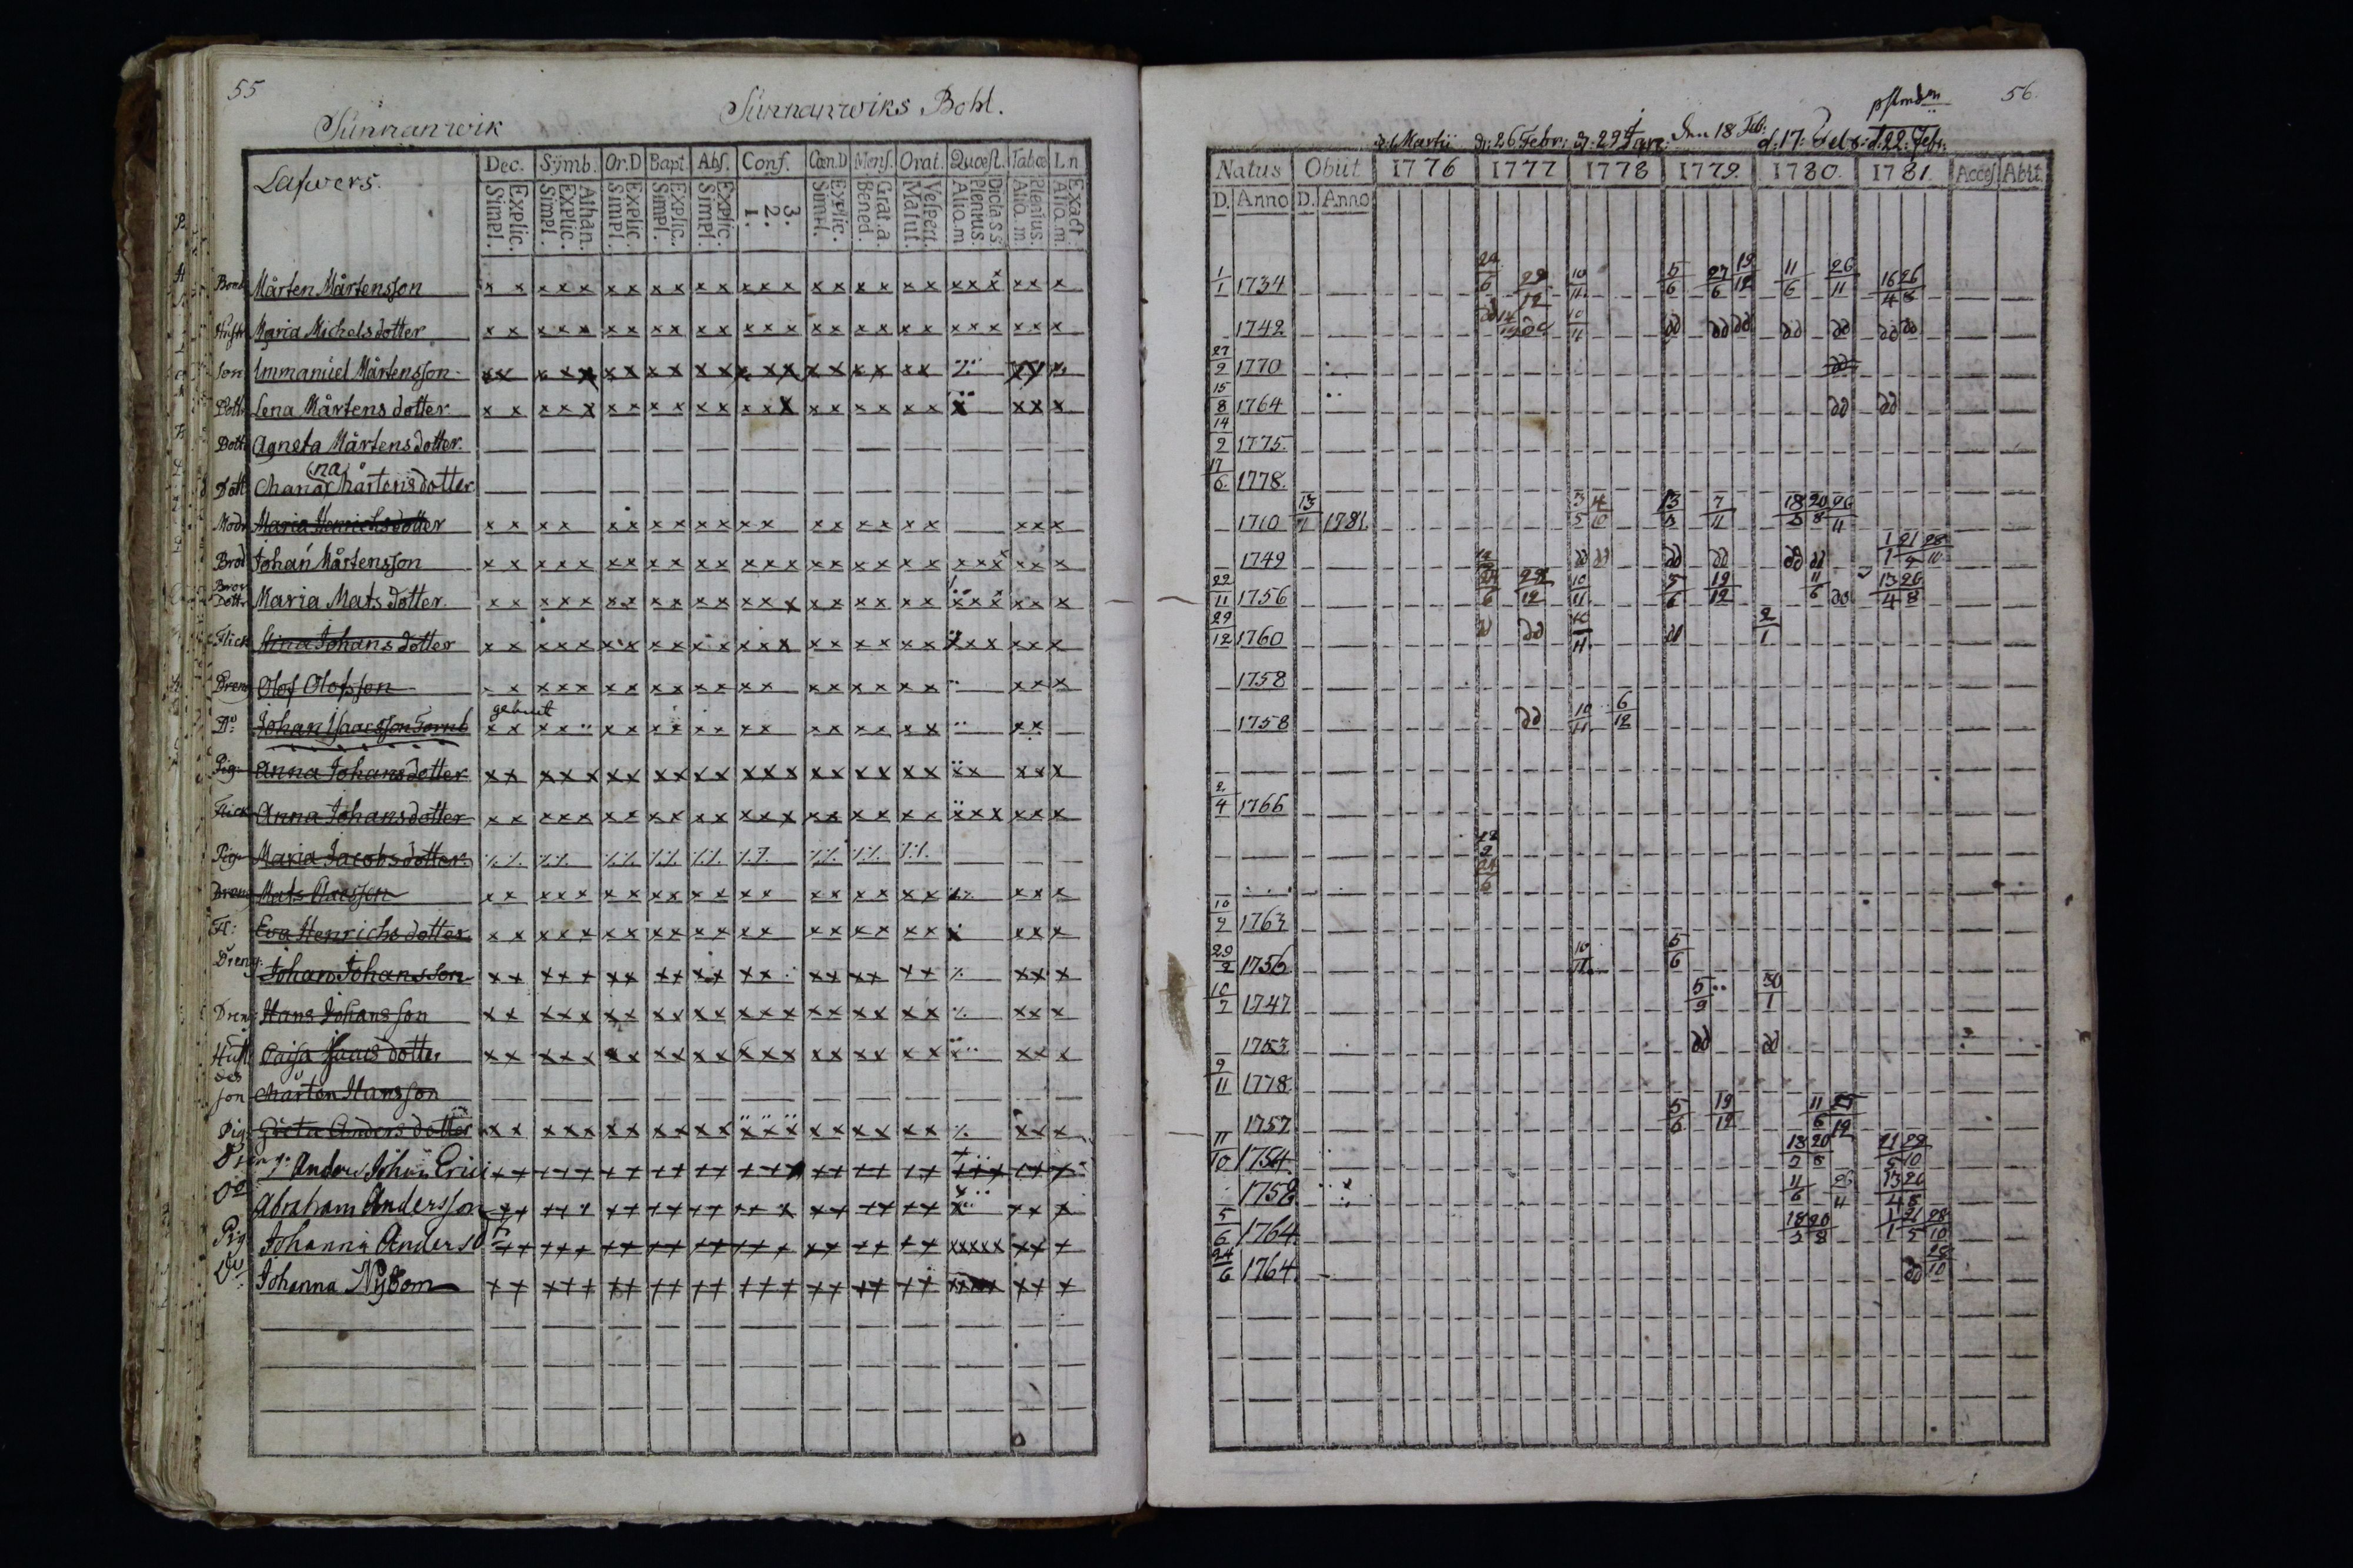 55
Sunnanwik
Sunnanwiks Bohl.
Lafwers.
Dec. Symb. Or.D Bapt. Abs. Conf. Cœn.D Mens. Orat. Quœst. Tabœ Ln
Explic. Simpl. Athan. Explic. Simpl. Explic. Simpl. Explic. Simpl. Explic. Simpl. 3. 2. 1. Explic. Simpl. Grat.a. Bened. Vespert. Matut. Dicta s.s. Plenius. Alio.m. Plenius. Alio.m. Exact. Alio.m.
Bond Mårten Mårtensson
Hustr Maria Michelsdotter
Son Immanuel Mårtensson
Dott. Lena Mårtens dotter
Dott Agneta Mårtens dotter.
Dott Maria Mårtens dotter
na
Modr Maria Henrichsdotter
Brod Johan Mårtensson
Bror Dott. Maria Mats dotter.
Flick Stina Johans dotter
Dreng Olof Olofsson
Do. Johan Isaacsson
Pig. Anna Johansdotter
Flick Anna Johansdotter
Pig. Maria Jacobsdotter.
Dreng Mats
Fl: Eva Henrichsdotter
Dreng. Johan Johansson
Dreng Hans Johansson
Hust Caisa Isaacs dotter
des son Mårten Hansson
Pig. Greta Anders dotter
Dreng. Anders Johan Erici
Do Abraham Andersson
Pig Johanna Anders D
Do Johanna Nybom
56.
d. 1 Martii d. 26 Febr: d. 29 Den 18 Feb: d. 17: Feb: d. 22: Febr:
Natus Obiit 1776 1777 1778 1779. 1780. 1781. Acces. Abit.
D. Anno D. Anno
1/1 1734 24/6 29/12 10/11 5/6 27/6 19/12 11/6 26/11 16/4 26/8
1742 dd dd 10/11 dd dd dd dd dd dd dd
27/9 1770 dd
15/8 1764 dd dd
14/2 1775.
17/6. 1778.
1710 13/7 1781. 3/5 4/10 13/5 7/11 18/5 20/8 26/11
1749 dd dd dd dd dd dd 1/1 21/5 28/10
22/11 1756 24/6 29/12 10/11 5/6 19/12 11/6 dd 13/4 26/8
29/12 1760 dd dd 10/11 dd 2/1
1758
1758 dd 10/11 6/12
2/4 1766
24/6
10/7 1763
29/2 1756 10/11 5/6
10/7 1747 5/9 30/1
1753 dd dd
9/11 1778
1757 5/6 19/12 11/6 12
11/10 1754 18/5 20/8 21/5 29/10
1758 11/6 26/11 13/4 26/8
5/6 1764 18/5 20/8 1/1 21/5 28/10
24/6 1764. dd 28/10